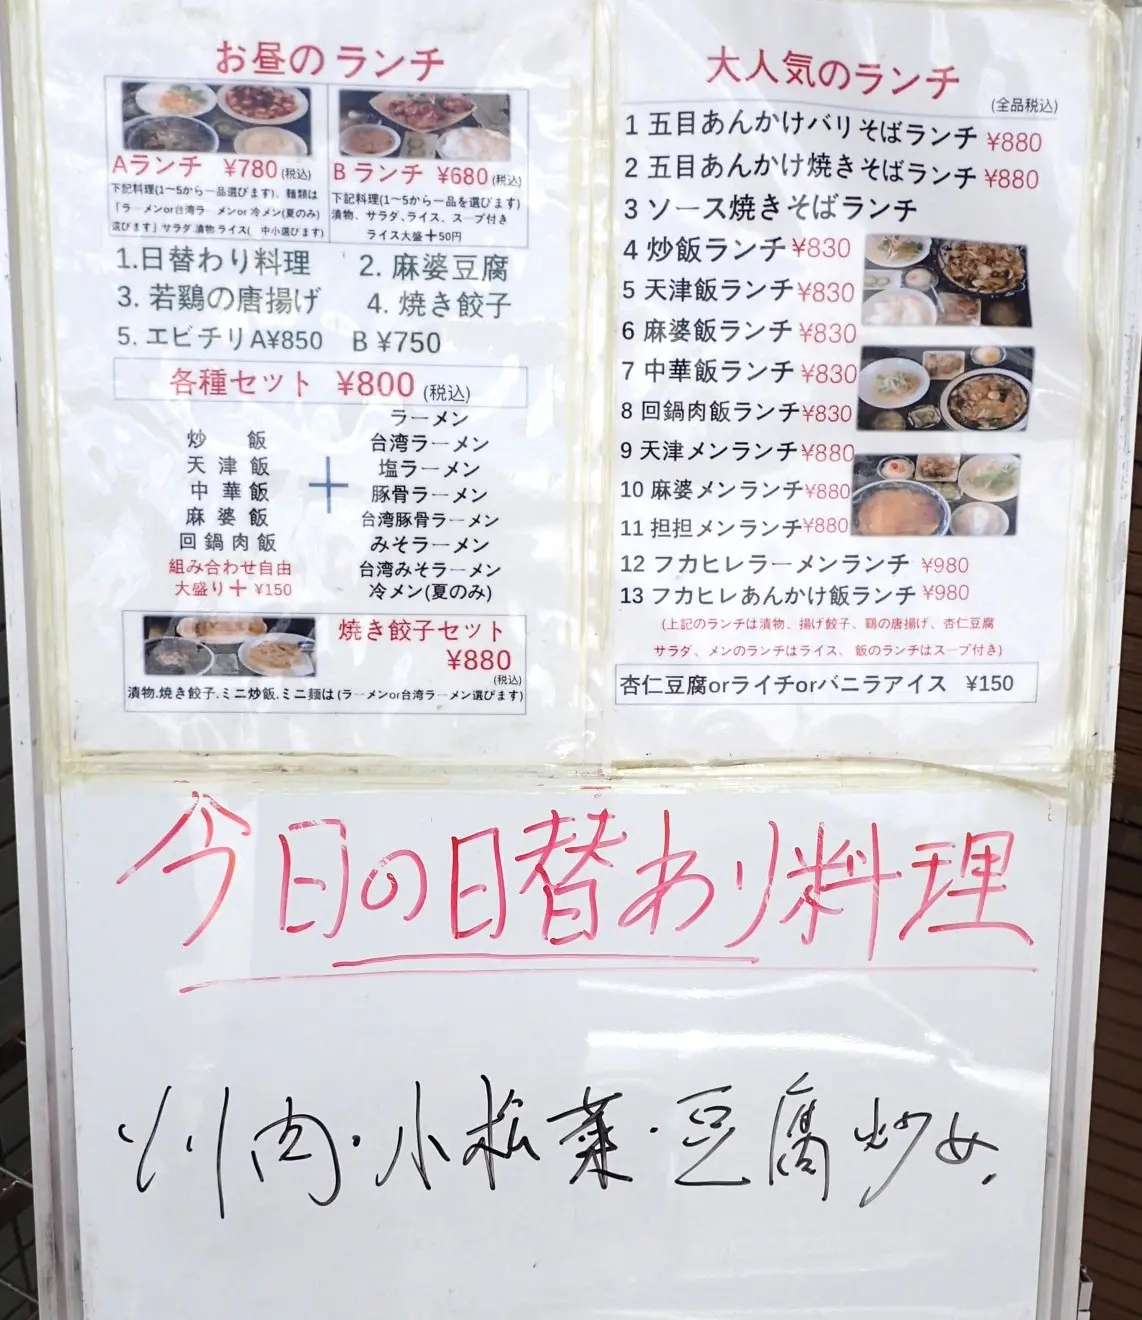 お昼のランチ
Aランチ ¥780(税込)
下記料理(1〜5から一品選びます)、麺類は
「ラーメンor台湾ラーメンor冷メン(夏のみ)
選びます」サラダ.漬物.ライス( 中小選びます)
B ランチ ¥680(税込)
下記料理(1〜5から一品を選びます)
漬物、サラダ、ライス、スープ付き
ライス大盛+50円
1.日替わり料理 2. 麻婆豆腐
3. 若鶏の唐揚げ 4. 焼き餃子
5. エビチリA¥850 B ¥750
各種セット ¥800 (税込)
炒飯
天津飯
中華飯
麻婆飯
回鍋肉飯
組み合わせ自由
大盛り+ ¥150
+
ラーメン
台湾ラーメン
塩ラーメン
豚骨ラーメン
台湾豚骨ラーメン
みそラーメン
台湾みそラーメン
冷メン(夏のみ)
焼き餃子セット
¥880
(税込)
漬物.焼き餃子.ミニ炒飯.ミニ麺は(ラーメンor台湾ラーメン選びます)
大人気のランチ
(全品税込)
1 五目あんかけバリそばランチ ¥880
2 五目あんかけ焼きそばランチ ¥880
3 ソース焼きそばランチ
4 炒飯ランチ ¥830
5 天津飯ランチ ¥830
6 麻婆飯ランチ ¥830
7 中華飯ランチ ¥830
8 回鍋肉飯ランチ ¥830
9 天津メンランチ ¥880
10 麻婆メンランチ ¥880
11 担担メンランチ ¥880
12 フカヒレラーメンランチ ¥980
13 フカヒレあんかけ飯ランチ ¥980
(上記のランチは漬物、揚げ餃子、鶏の唐揚げ、杏仁豆腐
サラダ、メンのランチはライス、飯のランチはスープ付き)
杏仁豆腐orライチorバニラアイス ¥150
今日の日替わり料理
肉・小松菜・豆腐炒め